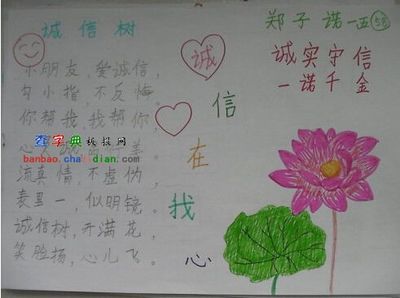 诚信树
小朋友，爱诚信，
勾小指，不反悔。
你帮我，我帮你，
心
流真情，不虚伪，
表里一，似明镜。
诚信树，开满花，
笑脸扬，心儿飞。
查字典板报网
banbao.chazidian.com
诚
信
在
我
心
郑子诺 一五 58
诚实守信
一诺千金